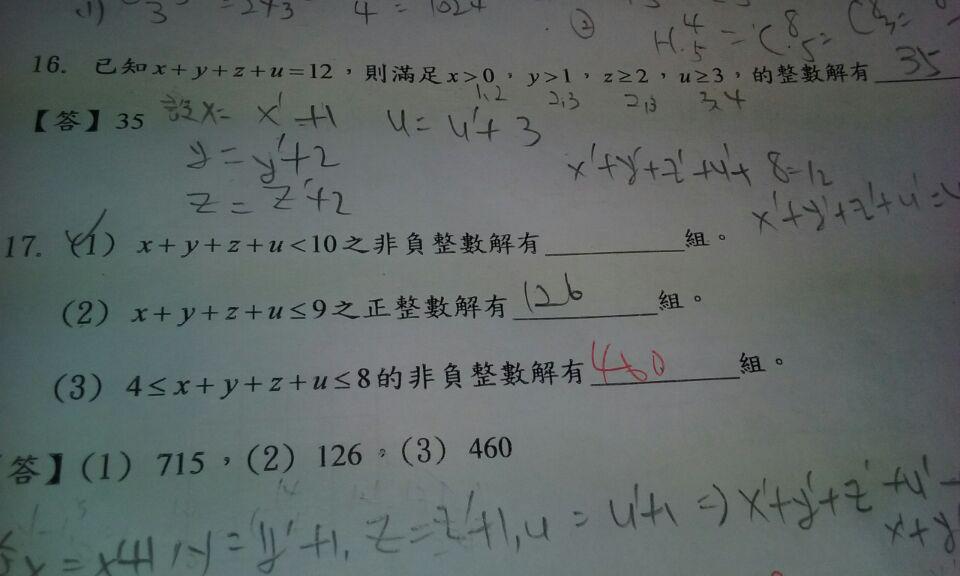 (1) 3 = 243 4 = 1024
② H 4 5 = C 8 5 = C 8 3 =
16. 已知x+y+z+u=12,則滿足x>0,y>1,z≥2,u≥3,的整數解有 35
1,2 2,3 2,3 3,4
【答】35 設x= x'+1 u= u'+3
y= y'+2 x'+y'+z'+u'+8=12
z= z'+2 x'+y'+z'+u'=4
17. (1) x+y+z+u<10之非負整數解有________組。
(2) x+y+z+u≤9之正整數解有 126 組。
(3) 4≤x+y+z+u≤8的非負整數解有 460 組。
答】(1) 715,(2) 126,(3) 460
x= x'+1, y= y'+1, z= z'+1, u= u'+1 => x'+y'+z'+u'
x+y